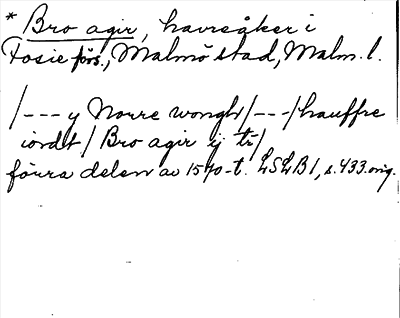 * Bro agir, havreåker i
Fosie förs., Malmö stad, Malm. l.
/--- y Norre wongh/---/hauffre
iordt/ Bro agir ij tr/
förra delen av 1570-t. LSLB1, s. 433. orig.